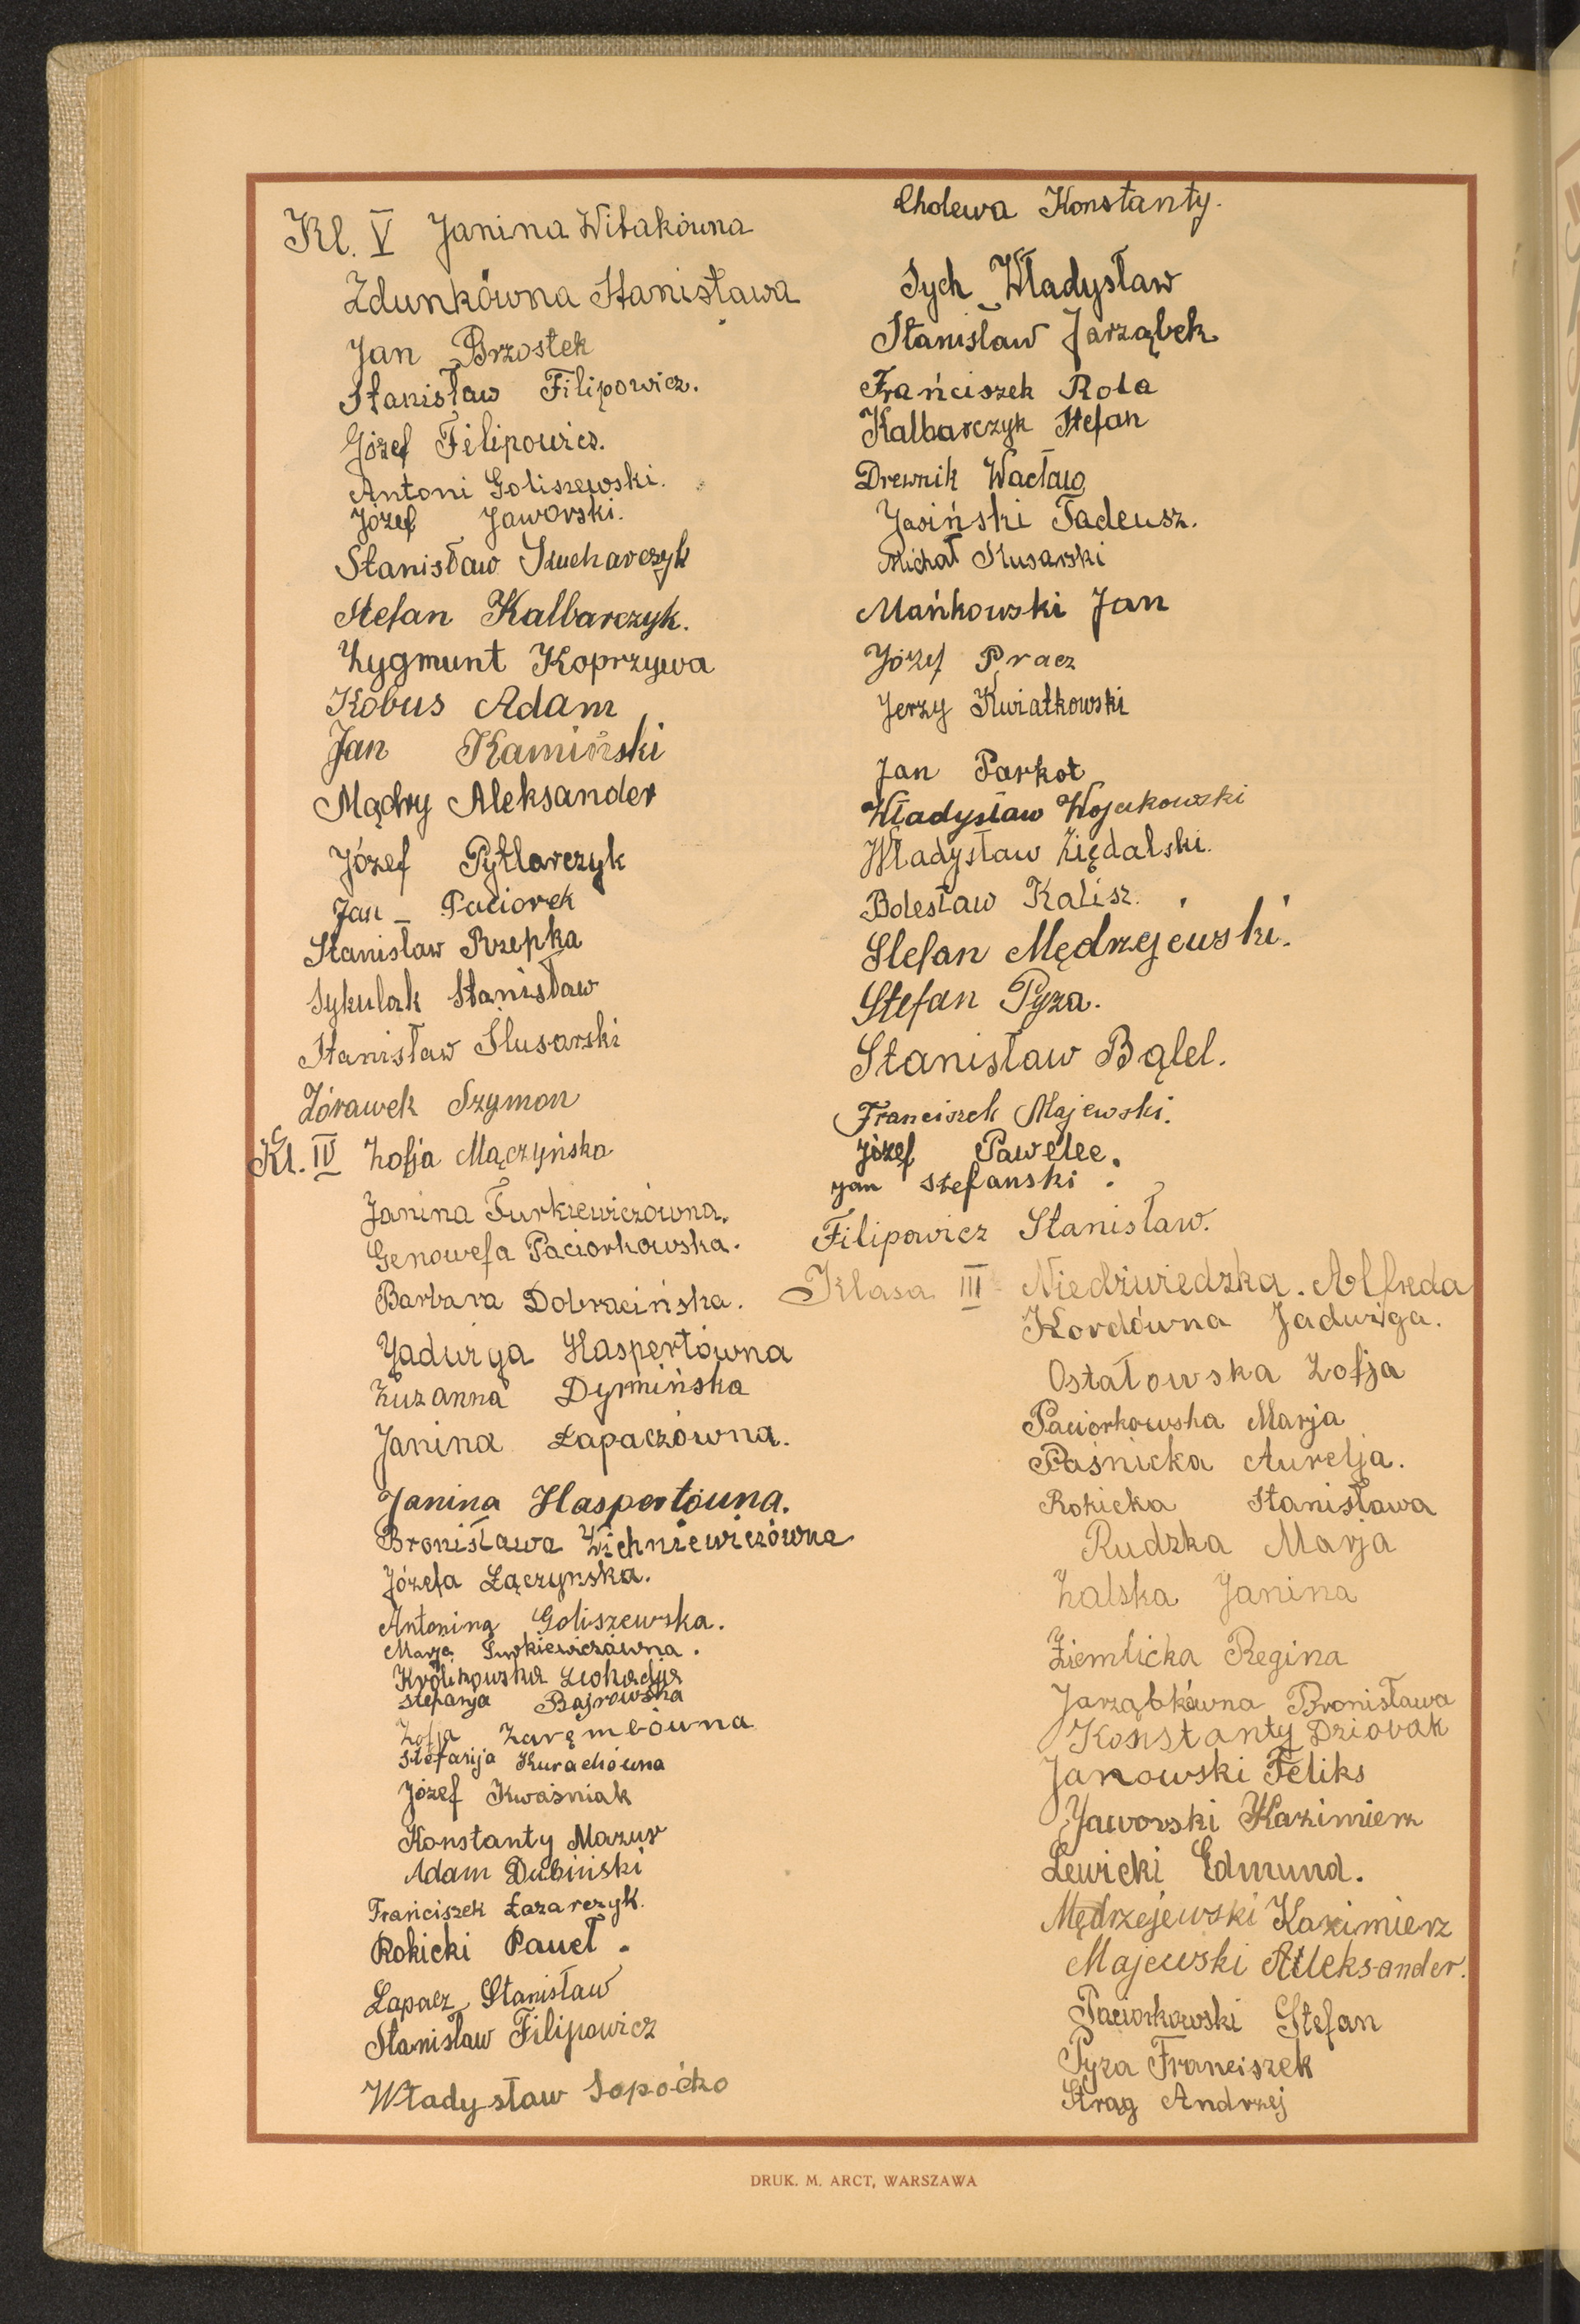 Kl. V Janina Witakówna
Zdunkówna Stanisława
Jan Brzostek
Stanisław Filipowicz.
Józef Filipowicz.
Antoni Goliszewski.
Józef Jaworski.
Stanisław Kucharczyk
Stefan Kalbarczyk.
Zygmunt Koprzywa
Kobus Adam
Jan Kamiński
Mądry Aleksander
Józef Pytlarczyk
Jan Paciorek
Stanisław Rzepka
Sykulak Stanisław
Stanisław Ślusarski
Żórawek Szymon
Kl. IV Zofja Mączyńska
Janina Turkiewiczówna.
Genowefa Paciorkowska.
Barbara Dobracińska.
Jadwiga Haspertówna
Zuzanna Dyrmińska
Janina Łapaczówna.
Janina Haspertówna.
Bronisława Zichniewiczówna
Józefa Łączyńska.
Antonina Goliszewska.
Marja Turkiewiczówna.
Królikowska Leokadja
Stefanja Bajrowska
Zofja Zarębówna
Stefanija Kurachówna
Józef Kwaśniak
Konstanty Mazur
Adam Dubiński
Franciszek Łazarczyk.
Rokicki Paweł.
Łapacz Stanisław
Stanisław Filipowicz
Władysław Sopoćko
Cholewa Konstanty.
Sych Władysław
Stanisław Jarząbek
Frańciszek Rola
Kalbarczyk Stefan
Drewnik Wacław
Jasiński Tadeusz.
Michał Ślusarski
Mańkowski Jan
Józef Pracz
Jerzy Kwiatkowski
Jan Parkot
Władysław Wojakowski
Władysław Ziędalski.
Bolesław Kalisz.
Stefan Mędrzejewski.
Stefan Pyza.
Stanisław Bąlel.
Franciszek Majewski.
Józef Pawelec.
Jan Stefanski.
Filipowicz Stanisław.
Klasa III Niedźwiedzka. Alfreda
Kordówna Jadwiga.
Ostałowska Zofja
Paciorkowska Marja
Paśnicka Aurelja.
Rokicka Stanisława
Rudzka Marja
Zalska Janina
Ziemlicka Regina
Jarząbkówna Bronisława
Konstanty Dziobak
Janowski Feliks
Jaworski Kazimierz
Lewicki Edmund.
Mędrzejewski Kazimierz
Majewski Aleksander.
Paciorkowski Stefan
Pyza Franciszek
Strąg Andrzej
DRUK. M. ARCT, WARSZAWA